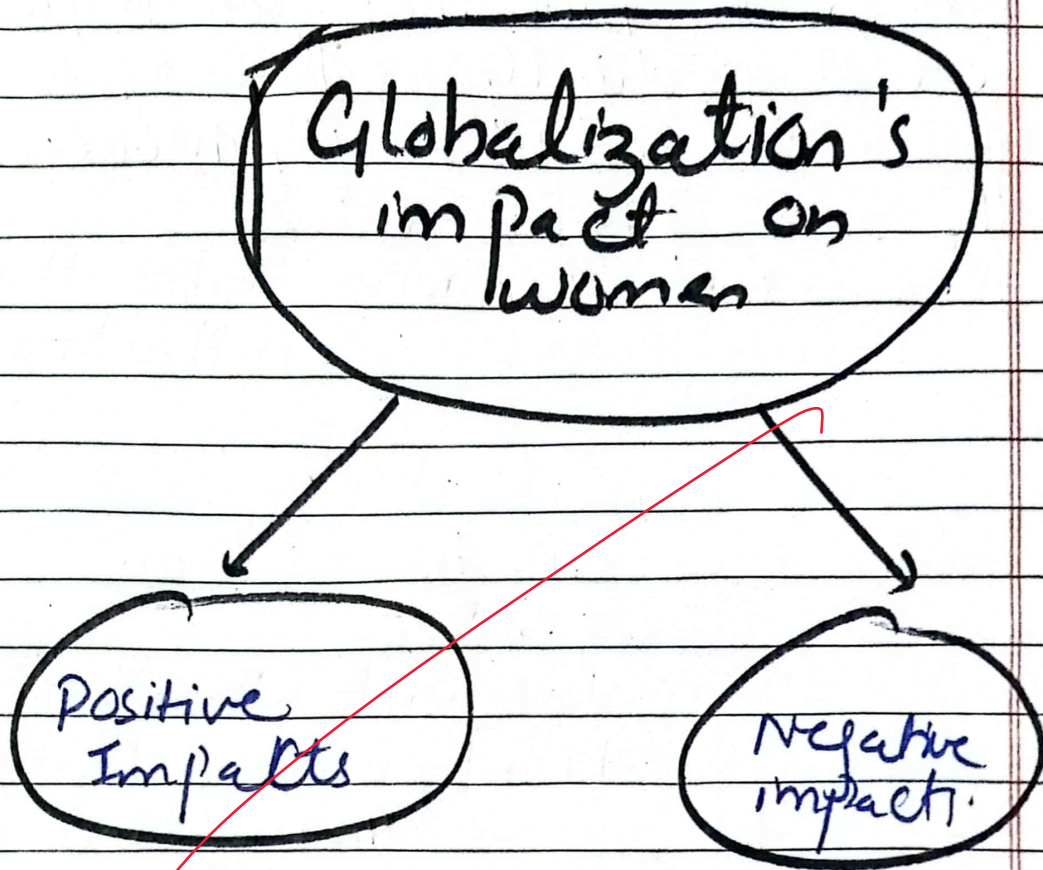 Globalization's
impact on
women
Positive
Impacts
Negative
impact.